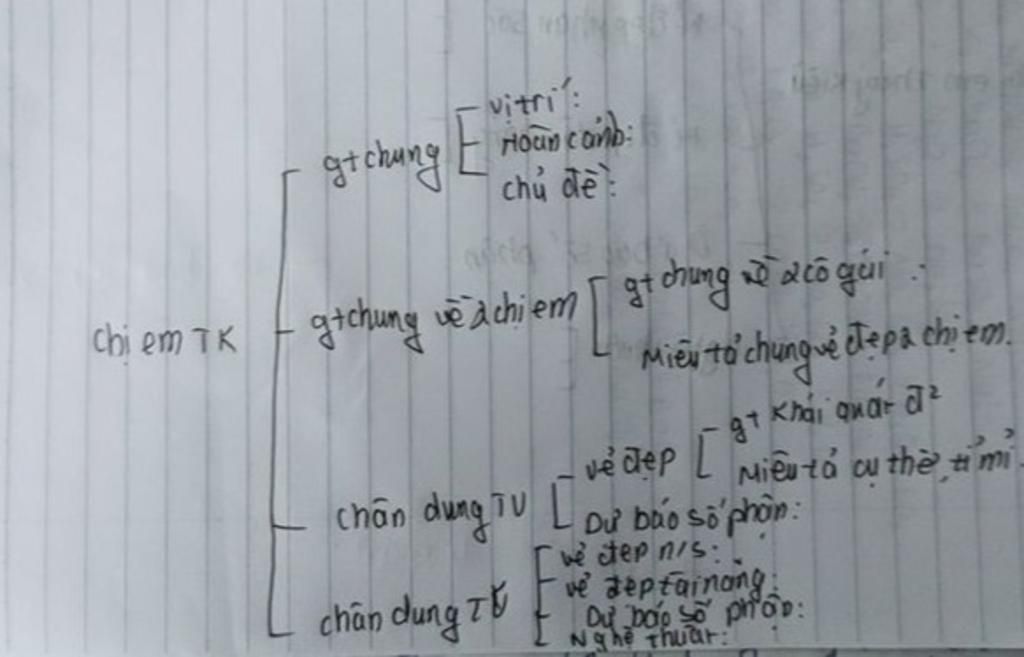 vị trí:
gt chung
Hoàn cảnh:
chủ đề:
gt chung về 2 cô gái :
gt chung về 2 chị em
chị em TK
Miêu tả chung vẻ đẹp 2 chị em.
gt khái quát đ²
vẻ đẹp
Miêu tả cụ thể, tỉ mỉ.
chân dung TV
Dự báo số phận:
vẻ đẹp n/s:
vẻ đẹp tài năng:
chân dung TK
Dự báo số phận:
Nghệ thuật: